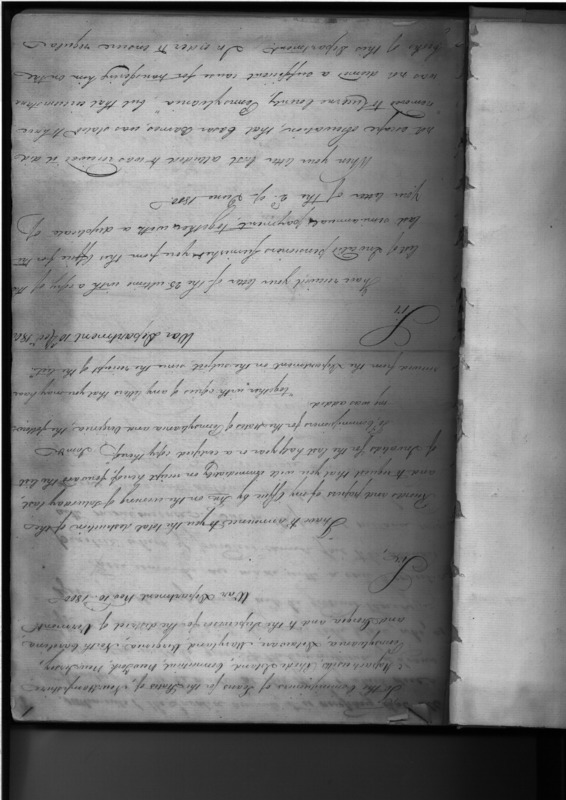 To the Commissioners of Loans for the States of New Hampshire
Massachusetts Rhode Island, Connecticut, New York, New Jersey,
Pennsylvania, Delaware, Maryland, Virginia, North Carolina,
and Georgia and to the Supervisor for the district of Vermont
War Department Nov 10. 1800
Sir,
I have to announce to you the total destruction of the
Books and papers of my Office by fire on the evening of Saturday last,
and to request that you will immediately on receipt hereof, forward the list
of Invalids for the last half year or a certified copy thereof.
To Commissioners for the States of Pennsylvania and Virginia, the follow-
ing was added.
"together, with copies of any letters that you may have
received from the Department on the subject since the receipt of the list."
War Department 10 Dec.
Sir
I have received your letter of the 25 ultimo with a copy of the
list of Invalid pensioners furnished you from this Office for the
last semi-annual payment, together with a duplicate of
your letter of the 2. of June 1800.
When your letter last alluded to was received it did
not escape observation, that Adams, was stated to have
removed to Luzerne County Pennsylvania but that circumstance
was not deemed a sufficient cause for transferring him on the
books of this Department. In order to ensure regular